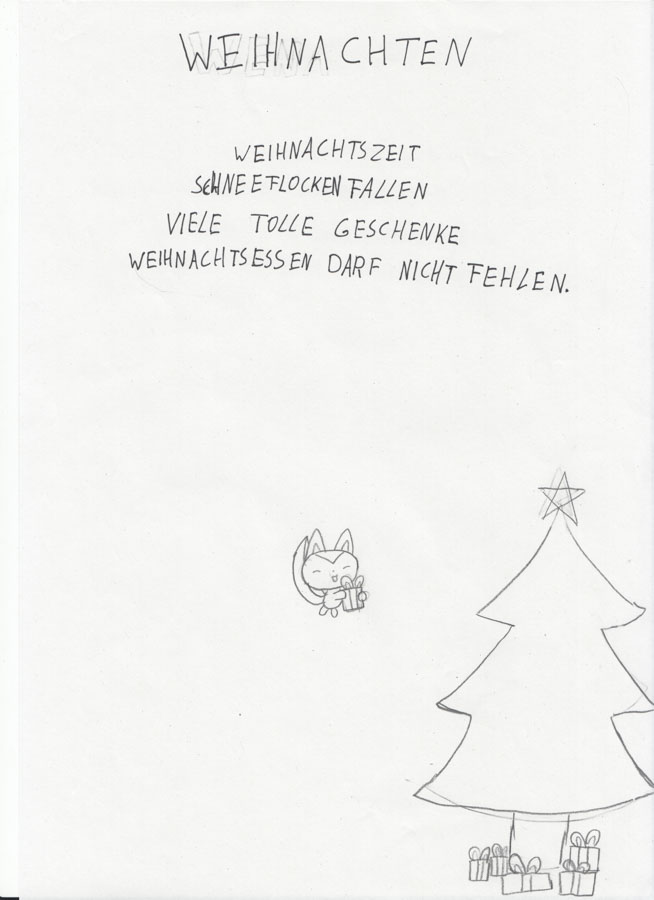 WEIHNACHTEN
WEIHNACHTSZEIT
SCHNEEFLOCKEN FALLEN
VIELE TOLLE GESCHENKE
WEIHNACHTSESSEN DARF NICHT FEHLEN.